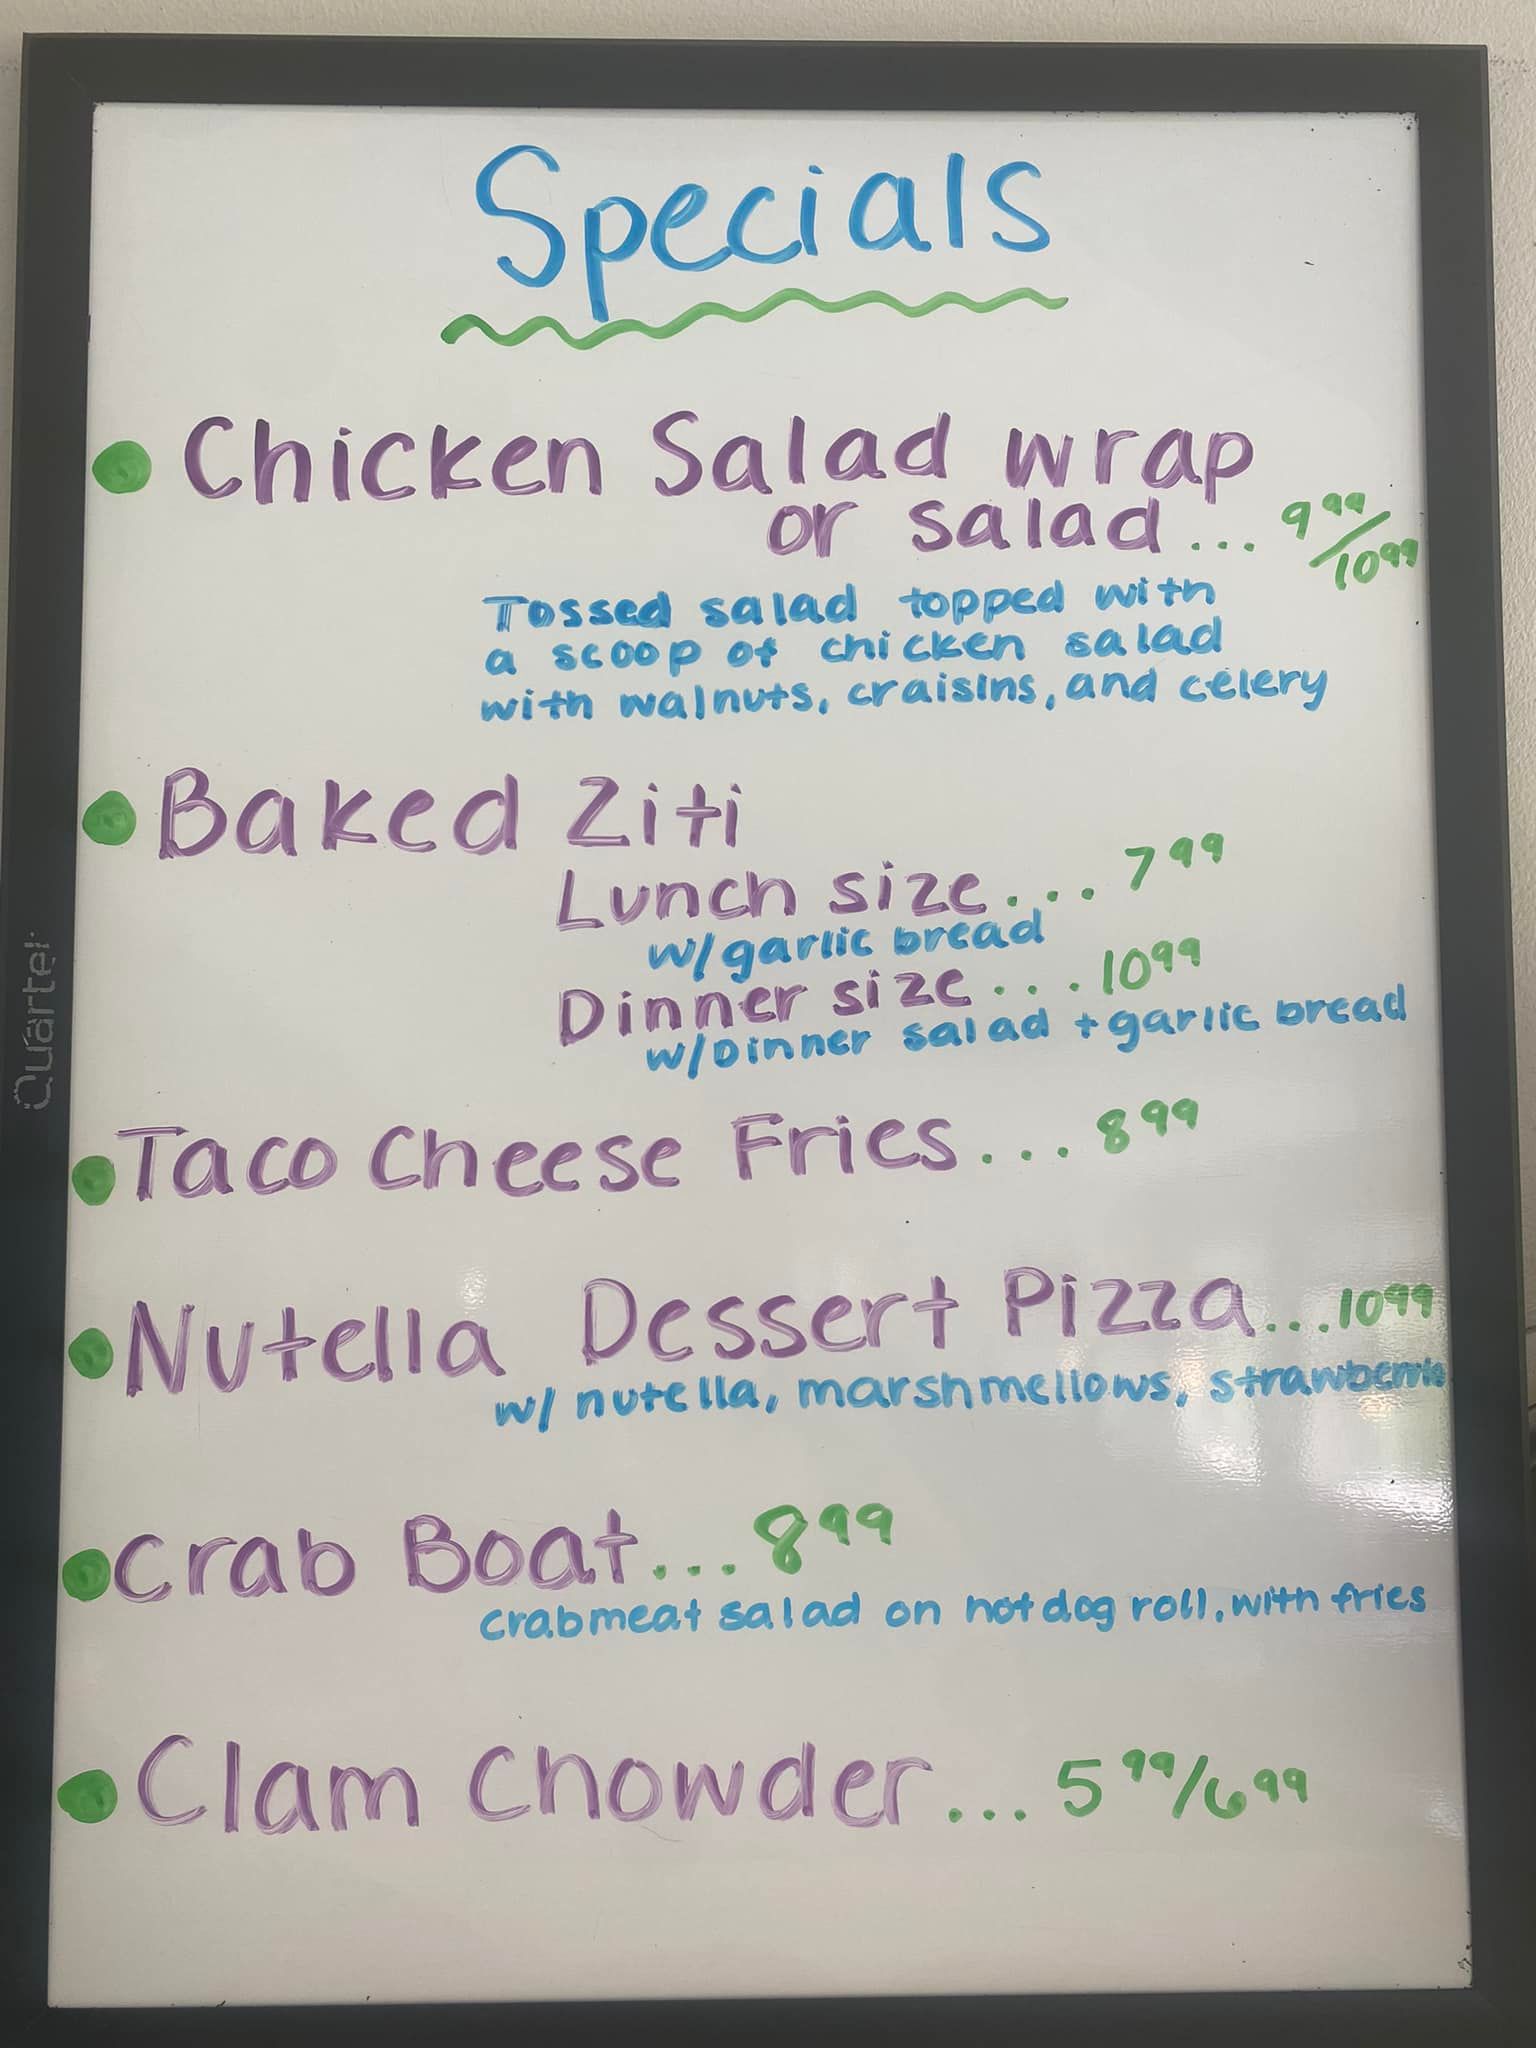 Specials
Chicken Salad wrap
or salad... 9.99/10.99
Tossed salad topped with
a scoop of chicken salad
with walnuts, craisins, and celery
Baked Ziti
Lunch size... 7.99
w/garlic bread
Dinner size... 10.99
w/Dinner salad + garlic bread
Taco Cheese Fries... 8.99
Nutella Dessert Pizza... 10.99
w/ nutella, marshmellows, strawberries
Crab Boat... 8.99
crabmeat salad on hotdog roll, with fries
Clam Chowder... 5.99/6.99
Quartet